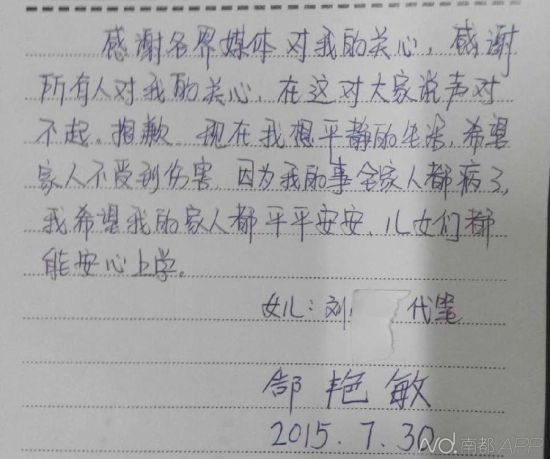 感谢各界媒体对我的关心，感谢
所有人对我的关心，在这对大家说声对
不起。抱歉 现在我想平静的生活，希望
家人不受到伤害 因为我的事全家人都病了，
我希望我的家人都平平安安、儿女们都
能安心上学。
女儿：刘 代笔
郜艳敏
2015.7.30
南都APP